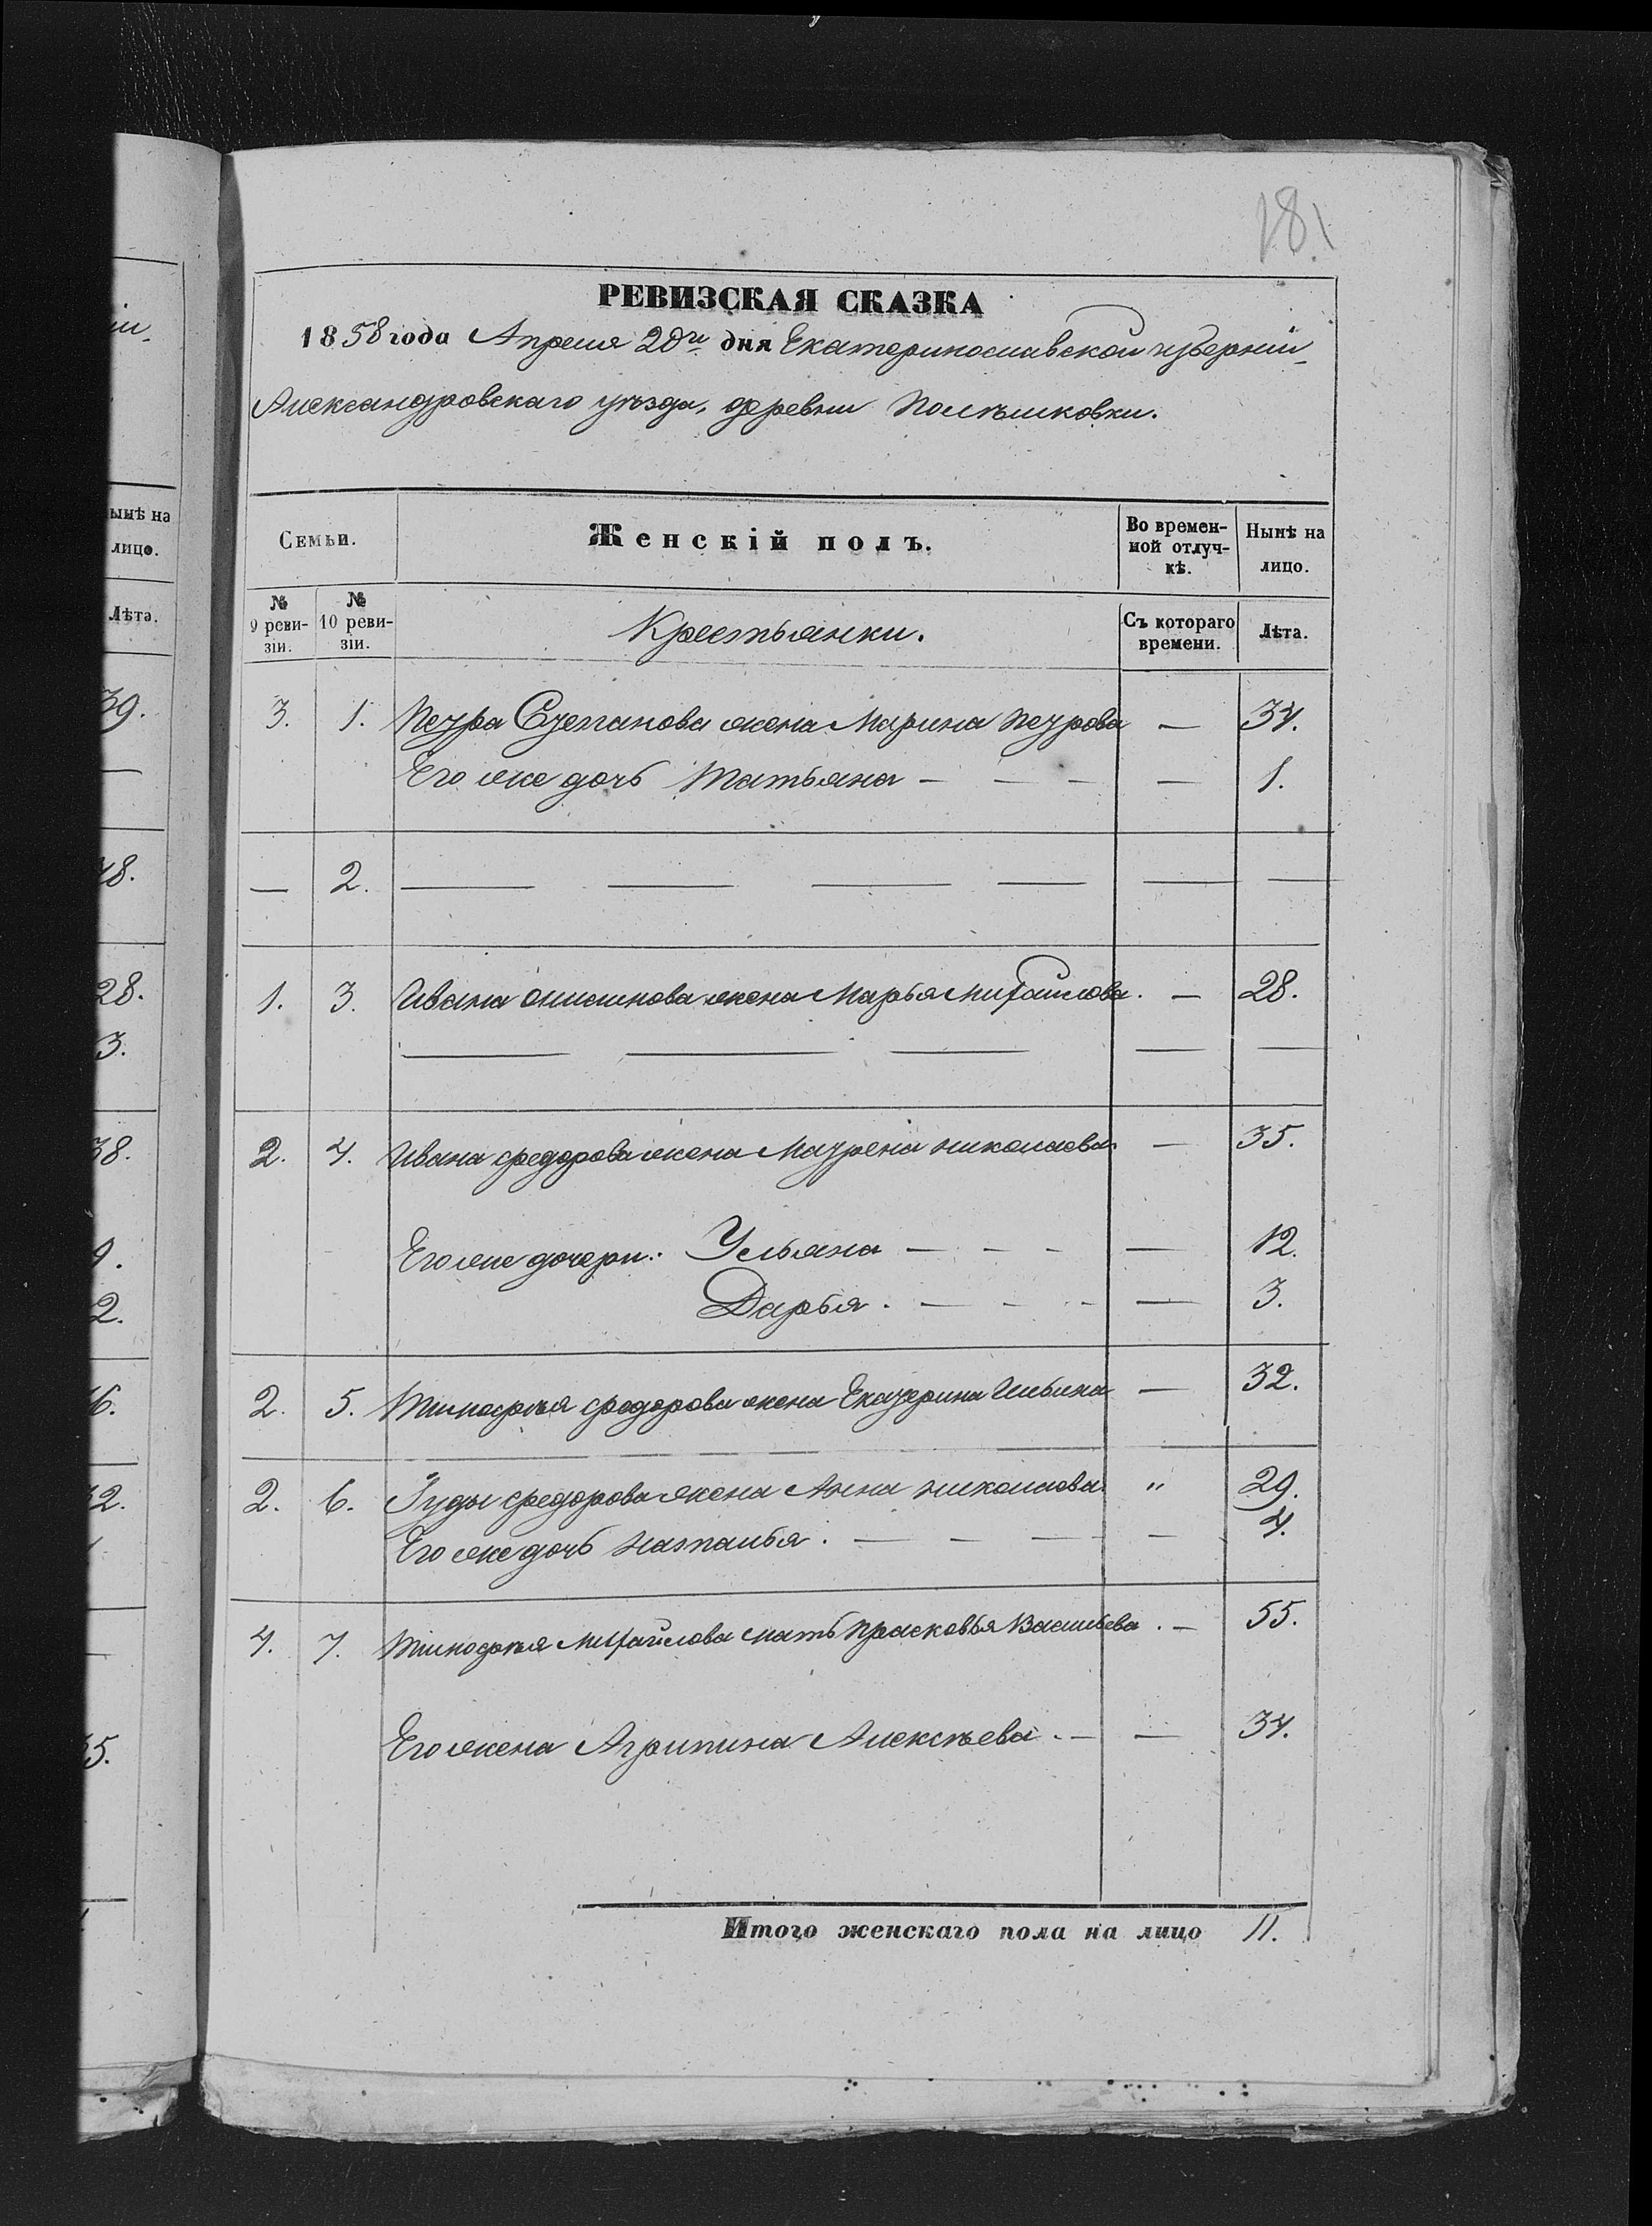 181
РЕВИЗСКАЯ СКАЗКА
1858 года Апреля 20го дня Екатеринославской губернiи
Александровскаго уѣзда, деревни Полѣшковки.
Семьи. Женскiй полъ. Во времен-ной отлуч-кѣ. Нынѣ на лицо.
№ 9 реви-зiи. № 10 реви-зiи. Крестьянки. Съ котораго времени. Лѣта.
3. 1. Петра Степанова жена Марина Петрова — 34.
Его же дочь Татьяна — — — — 1.
— 2. — — — — — —
1. 3. Ивана жена Марья Михайлова. — 28.
— — — — —
2. 4. Ивана Федорова жена Матрена Николаева — 35.
Его же дочери: Ульяна — — — — 12.
Дарья. — — — — 3.
2. 5. Тимофѣя Федорова жена Екатерина Ильина — 32.
2. 6. Iуды Федорова жена Анна Николаева " 29.
Его же дочь Наталья. — — — — 4.
4. 7. Тимофѣя Михайлова мать Прасковья Васильева. — 55.
Его жена Агрипина Алексѣева. — — 34.
Итого женскаго пола на лицо 11.
ынѣ на
лицо.
Лѣта.
39.
48.
28.
3.
38.
9.
2.